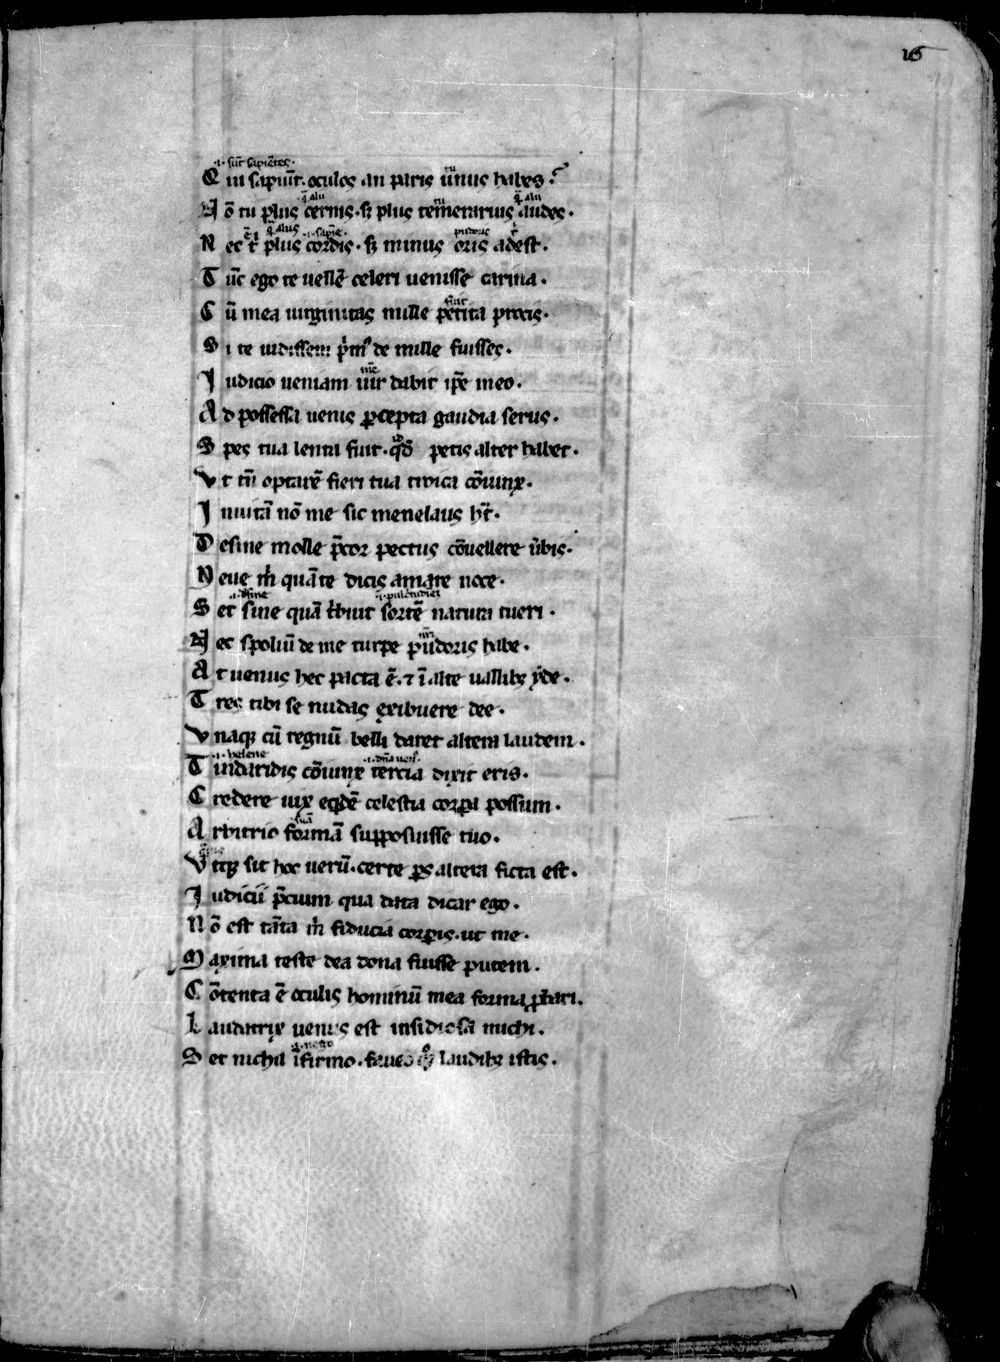 16
.i. sunt sapiẽtes.
Q ui sapiũt. oculos an paris ũnus habes?
N õ tu plus cernis. s; plus temerarius audes.
N ec t̃ plus cordis. s; minus oris adest.
T ũc ego te uellẽ celeri uenisse carina.
C ũ mea uirginitas mille petita procis.
S i te uidissem p̃m᷒ de mille fuisses.
I udicio ueniam uir dabit ip̃e meo.
A d possessa uenis p̱cepta gaudia serus.
S pes tua lenta fuit. q̃d petis alter habet.
V t tñ optarẽ fieri tua troica cõiunx.
I nuitã nõ me sic menelaus h̃t.
D esine molle p̃cor pectus cõuellere ũbis.
N eue m̃ quã te dicis amare noce.
S et sine quã t̃buit sortẽ natura tueri.
N ec spoliũ de me turpe pudoris habe.
A t uenus hec pacta ẽ. ⁊ ĩ alte uallib; yde.
T res tibi se nudas exibuere dee.
V naq; cũ regnũ belli daret altera laudem.
.i. helene
T indaridis cõiunx tercia dixit eris.
C redere uix eqdẽ celestia corpora possum.
A rbitrio formã supposuisse tuo.
V tq; sit hoc uerũ. certe ps altera ficta est.
I udicii p̃cium qua data dicar ego.
N õ est tãta m̃ fiducia corporis. ut me.
M axima teste dea dona fuisse putem.
C õtenta ẽ oculis hominũ mea forma p̱bari.
L audatrix uenus est insidiosa michi.
.i. nego
S et nichil ĩfirmo. faueo q̃; laudib; istis.